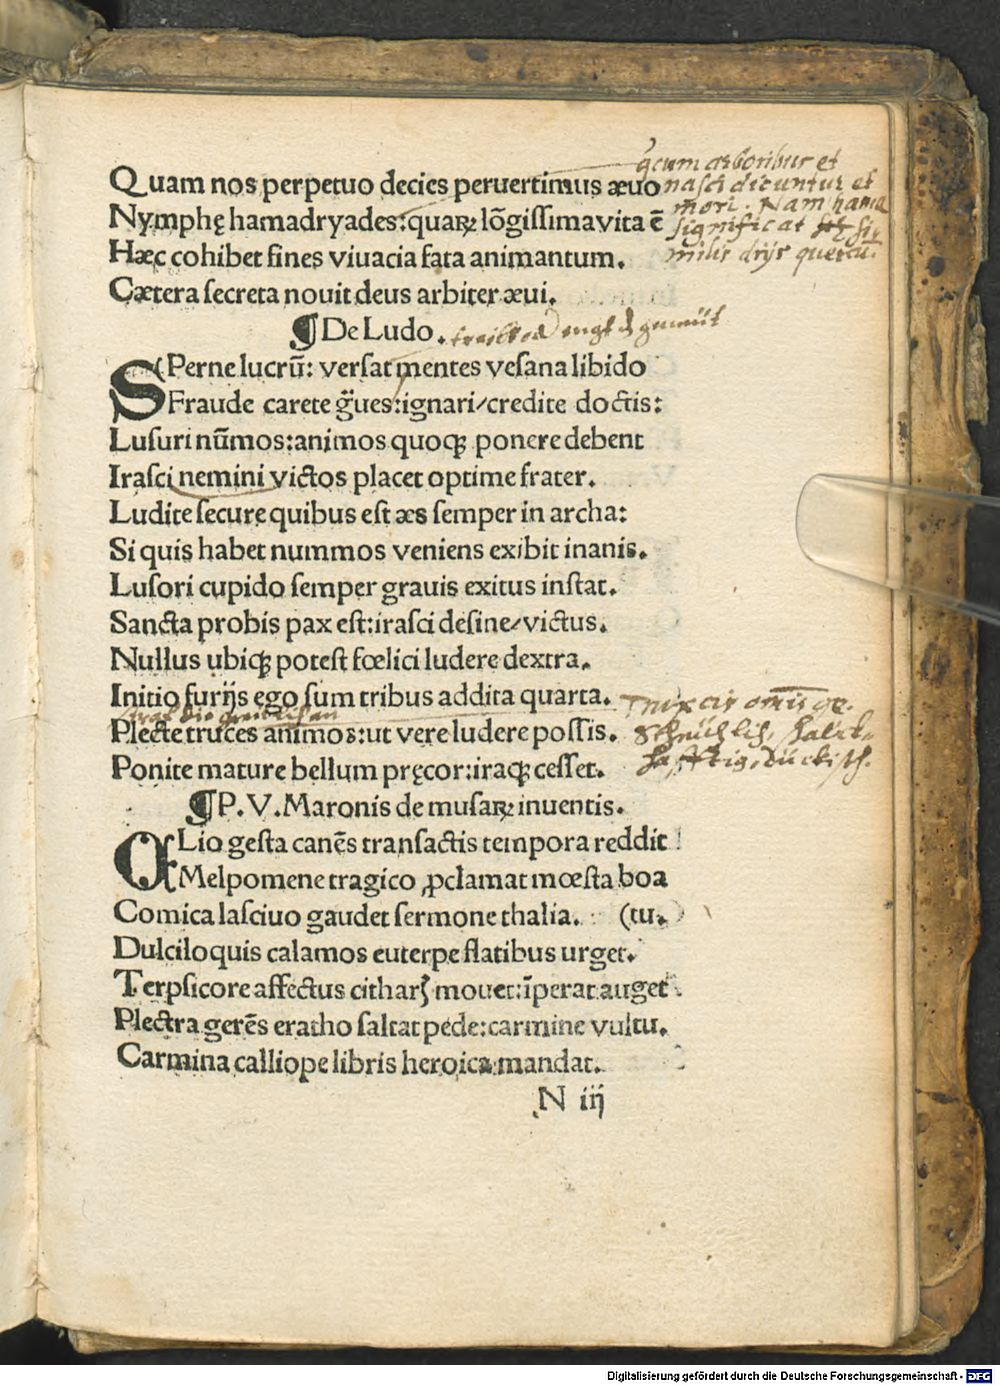 Quam nos perpetuo decies peruertimus æuo
Nymphę hamadryades: quaꝝ lõgissima vita ẽ
Hæc cohibet fines viuacia fata animantum.
Cætera secreta nouit deus arbiter æui.
qcum arboribus et
nasci dicuntur et
mori. Nam hama
significat
milis drijs quercu.
¶ De Ludo.
SPerne lucrũ: versat mentes vesana libido
Fraude carete g̃ues: ignari/credite doctis:
Lusuri nũmos: animos quoqꝫ ponere debent
Irasci nemini victos placet optime frater.
Ludite secure quibus est æs semper in archa:
Si quis habet nummos veniens exibit inanis.
Lusori cupido semper grauis exitus instat.
Sancta probis pax est: irasci desine/victus.
Nullus ubiqꝫ potest fœlici ludere dextra.
Initio furijs ego sum tribus addita quarta.
Plecte truces animos: ut vere ludere possis.
Ponite mature bellum pręcor: iraqꝫ cesset.
¶ P. V. Maronis de musaꝝ inuentis.
CLio gesta canẽs transactis tempora reddit
Melpomene tragico ꝓclamat mœsta boa
Comica lasciuo gaudet sermone thalia. (tu.
Dulciloquis calamos euterpe flatibus urget.
Terpsicore affectus citharꝭ mouet: ĩperat auget.
Plectra gerẽs eratho saltat pede: carmine vultu.
Carmina calliope libris heroica mandat.
N iij
Digitalisierung gefördert durch die Deutsche Forschungsgemeinschaft - DFG